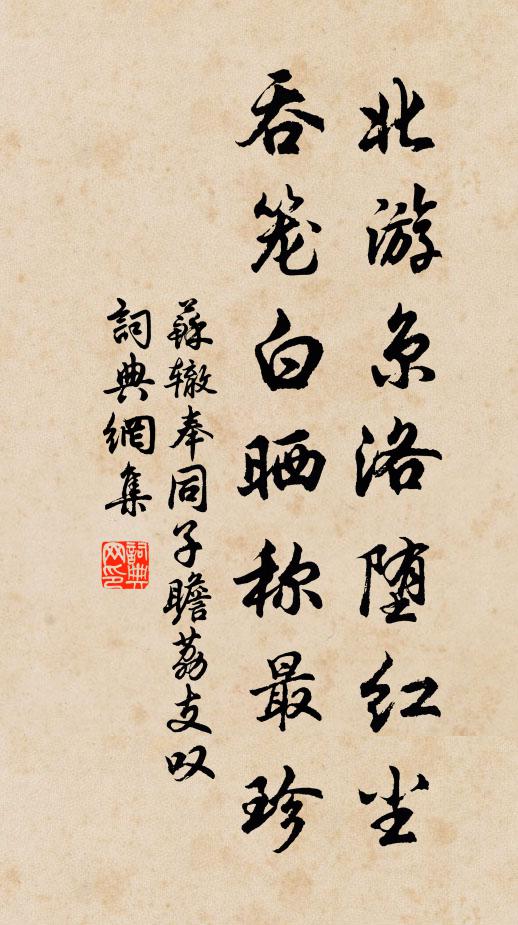 北游京洛堕红尘
吞笼白晒称最珍
蘇辙奉同子瞻荔支叹
詞典網集
詞典
网印